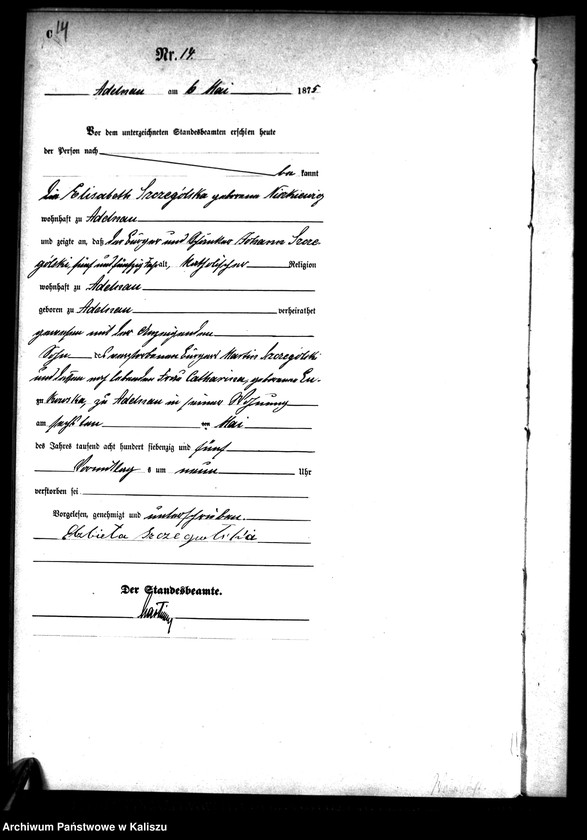 C 14
Nr. 14
Adelnau am 6 Mai 1875
Vor dem unterzeichneten Standesbeamten erschien heute
der Person nach
be kannt
die Elisabeth Szczególska geborene
wohnhaft zu Adelnau
und zeigte an, daß der Bürger und Schänker Johann Szcze-
gólski, fünf und fünfzig Jahr alt, katholischer Religion
wohnhaft zu Adelnau
geboren zu Adelnau verheirathet
gewesen mit der Anzeigenden
Sohn des verstorbenen Bürgers Martin Szczególski
und dessen noch lebenden Frau Catharina, geborene
zu Adelnau in seiner Wohnung
am sechsten von Mai
des Jahres tausend acht hundert siebenzig und fünf
Vormittag s um neun Uhr
verstorben sei
Vorgelesen, genehmigt und unterschrieben.
Elzbieta
Der Standesbeamte.
Archiwum Państwowe w Kaliszu